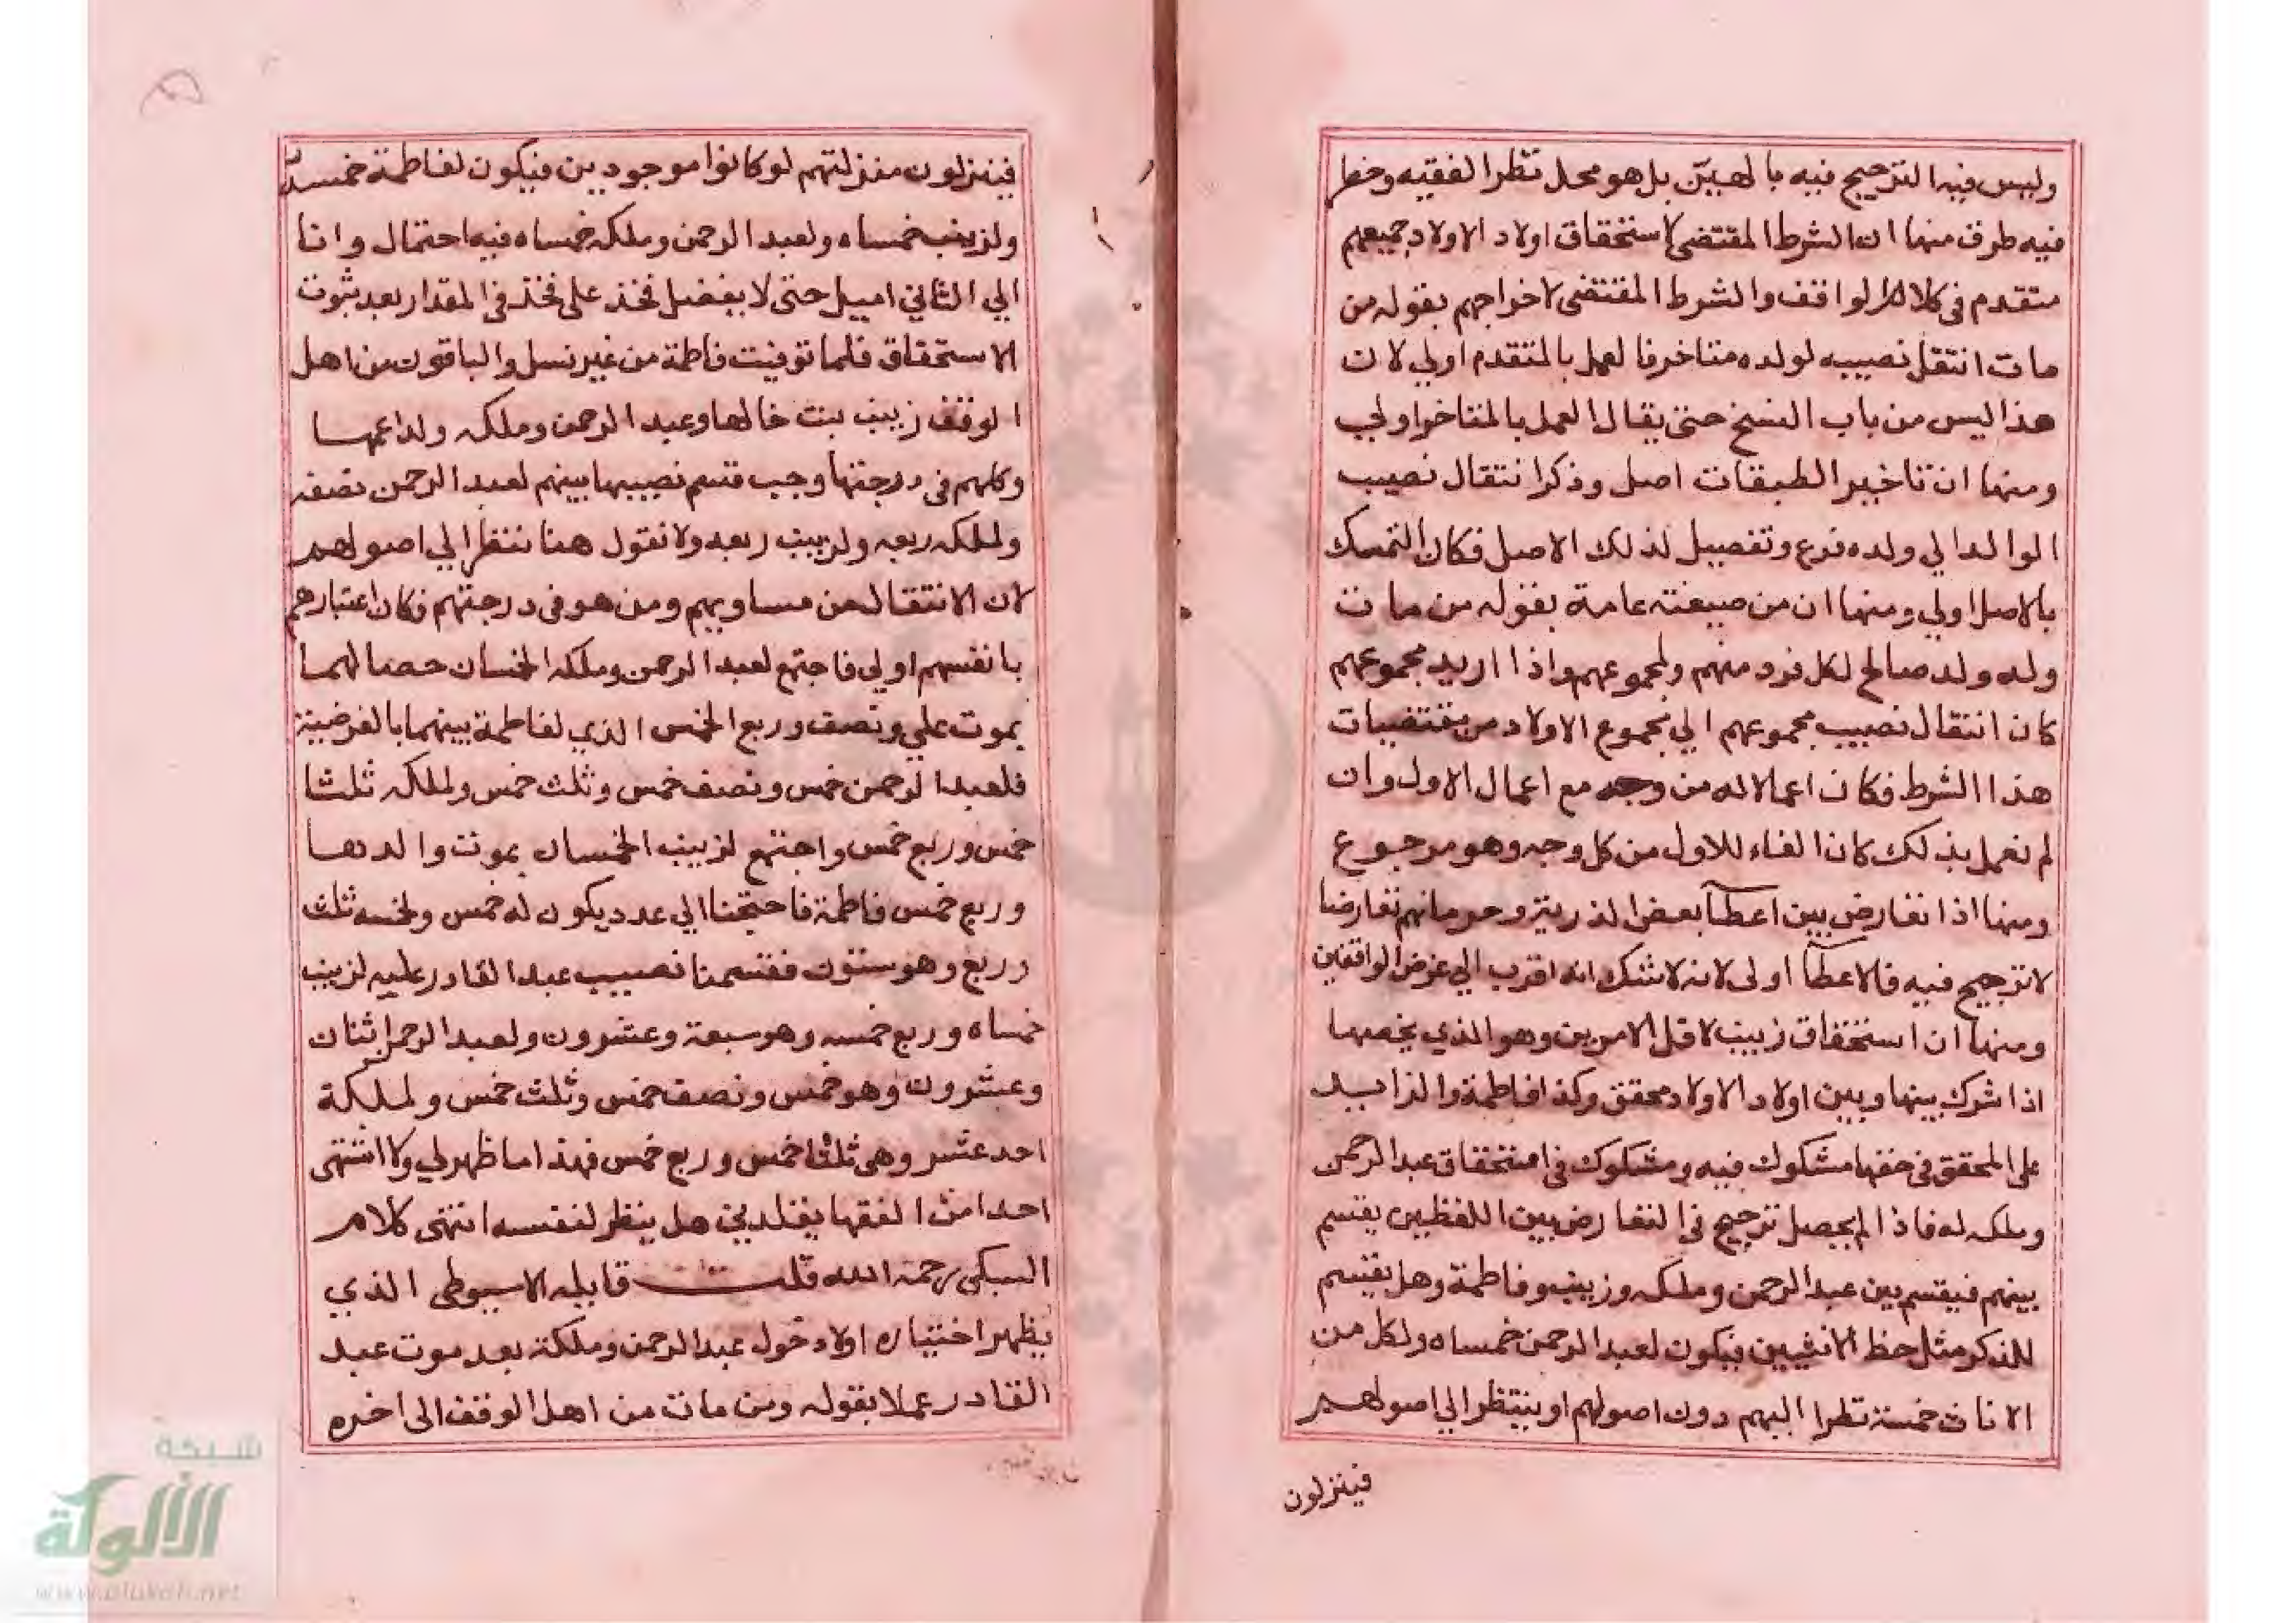 وليس فيه الترجيح فيه بالهين بل هو محل نظر الفقيه وخطر
فيه طرق منها ان الشرط المقتضى لاستحقاق اولاد الاولاد جميعهم
متقدم في كلام الواقف والشرط المقتضى لاخراجهم بقوله من
مات انتقل نصيبه لولده متاخر فالعمل بالمتقدم اولي لان
هذا ليس من باب النسخ حتى يقال العمل بالمتاخر اولي
ومنها ان تاخير الطبقات اصل وذكر انتقال نصيب
الوالد الي ولده فرع وتفصيل لذلك الاصل فكان التمسك
بالاصل اولي ومنها ان من صيغته عامة بقوله من مات
وله ولد صالح لكل فرد منهم ولمجموعهم واذا اريد مجموعهم
كان انتقال نصيب مجموعهم الي مجموع الاولاد من مقتضيات
هذا الشرط فكان اعمالا له من وجه مع اعمال الاول وان
لم نعمل بذلك كان الغاء للاول من كل وجه وهو مرجوع
ومنها اذا تعارض بين اعطآ بعض الذرية وحرمانهم تعارضا
لا ترجيح فيه فالاعطآ اولى لانه لا شك انه اقرب الي غرض الواقفين
ومنها ان استحقاق زينب لاقل الامرين وهو الذي يخصها
اذا شرك بينها وبين اولاد الاولاد محقق وكذا فاطمة والزايد
على المحقق في حقها مشكوك فيه ومشكوك في استحقاق عبد الرحمن
وملكه له فاذا لم يحصل ترجيح في التعارض بين اللفظين يقسم
بينهم فيقسم بين عبد الرحمن وملكه وزينب وفاطمة وهل يقسم
للذكر مثل حظ الانثيين فيكون لعبد الرحمن خمساه ولكل من
الاناث خمسة نظرا اليهم دون اصولهم او ينتظر الي اصولهم
فينزلون
فينزلون منزلتهم لو كانوا موجودين فيكون لفاطمة خمسه
ولزينب خمساه ولعبد الرحمن وملكه خمساه فيه احتمال وانا
الي الثاني اميل حتى لا يفضل فخذ على فخذ في المقدار بعد ثبوت
الاستحقاق فلما توفيت فاطمة من غير نسل والباقون من اهل
الوقف زينب بنت خالها وعبد الرحمن وملكه ولدا عمها
وكلهم في درجتها وجب قسم نصيبها بينهم لعبد الرحمن نصفه
ولملكه ربعه ولزينب ربعه ولا نقول هنا ننظر الي اصولهم
لان الانتقال من مساويهم ومن هو في درجتهم فكان اعتبارهم
بانفسهم اولي فاجتمع لعبد الرحمن وملكه الخمسان حصا لهما
بموت علي ونصف وربع الخمس الذي لفاطمة بينهما بالفرضية
فلعبد الرحمن خمس ونصف خمس وثلث خمس ولملكه ثلثا
خمس وربع خمس واجتمع لزينب الخمسان بموت والدها
وربع خمس فاطمة فاحتجنا الي عدد يكون له خمس ولخمسه ثلث
وربع وهو ستون فقسمنا نصيب عبد القادر عليه لزينب
خمساه وربع خمسه وهو سبعة وعشرون ولعبد الرحمن اثنان
وعشرون وهو خمس ونصف خمس وثلث خمس ولملكة
احد عشر وهي ثلثا خمس وربع خمس فهذا ما ظهر لي ولا اشتهى
احدا من الفقها يقلدني هل ينظر لنفسه انتهى كلام
السبكي رحمة الله قلت قايله الاسيوطي الذي
يظهر اختياره اولا دخول عبد الرحمن وملكة بعد موت عبد
القادر عملا بقوله ومن مات من اهل الوقف الى اخره
شبكة
الألوكة
www.alukah.net